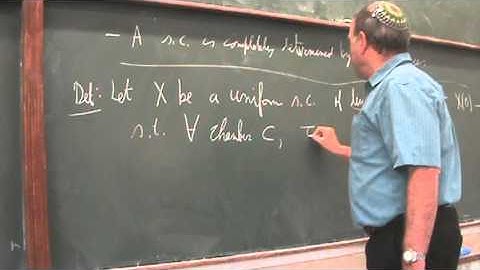 - A s.c. is completely determined by
Def: Let X be a uniform s.c. of X(0) -
s.t. ∀ chamber C,